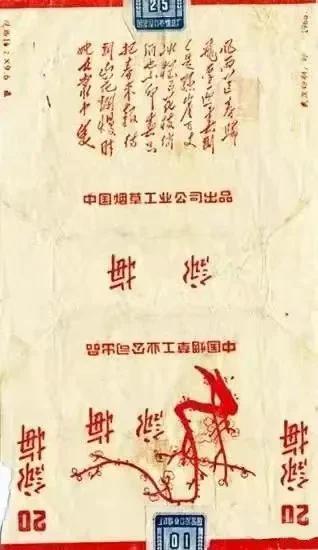 25
风雨送春归
飞雪迎春到
已是悬崖百丈
冰犹有花枝俏
俏也不争春只
把春来报待
到山花烂漫时
她在丛中笑
中国烟草工业公司出品
詠梅
中国烟草工业公司出品
詠梅
詠梅
20
詠梅
20
10